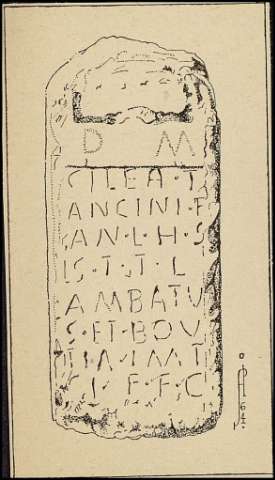 D M
CILEA·T
ANCINI·F
AN·L·H·S
IS·T·T·L
AMBATV
S·ET·BOV
TIA·
F·F·C